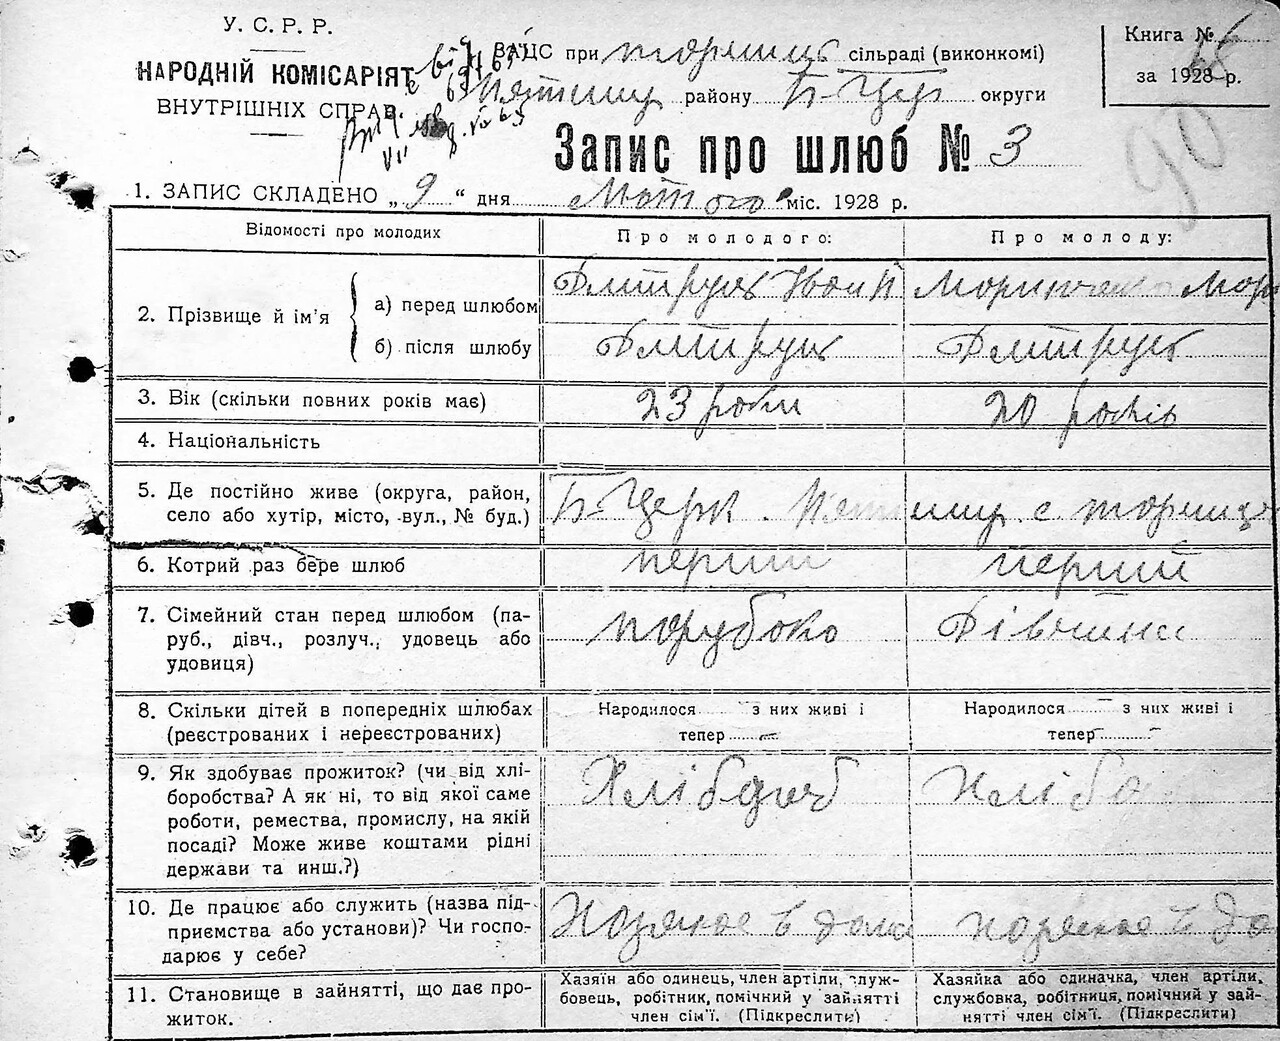 У. С. Р. Р.
НАРОДНІЙ КОМІСАРІЯТ
ВНУТРІШНІХ СПРАВ.
ВАЦС при сільраді (виконкомі)
району Б-Церк округи
Книга №
за 1928 р.
90
Запис про шлюб № 3
1. ЗАПИС СКЛАДЕНО „ 9 “ дня Лютого міс. 1928 р.
Відомості про молодих
Про молодого:
Про молоду:
2. Прізвище й ім’я
а) перед шлюбом
Дмитрук Іван
Мар
б) після шлюбу
Дмитрук
Дмитрук
3. Вік (скільки повних років має)
23 роки
20 років
4. Національність
5. Де постійно живе (округа, район,
село або хутір, місто, вул., № буд.)
Б-Церк. с.
6. Котрий раз бере шлюб
перший
перший
7. Сімейний стан перед шлюбом (па-
руб., дівч., розлуч., удовець або
удовиця)
парубоко
Дівчина
8. Скільки дітей в попередніх шлюбах
(реєстрованих і нереєстрованих)
Народилося — з них живі і
тепер —
Народилося — з них живі і
тепер —
9. Як здобуває прожиток? (чи від хлі-
боробства? А як ні, то від якої саме
роботи, ремества, промислу, на якій
посаді? Може живе коштами рідні
держави та инш.?)
Хлібороб
Хлібо
10. Де працює або служить (назва під-
приємства або установи)? Чи госпо-
дарює у себе?
в дома
в до
11. Становище в зайнятті, що дає про-
житок.
Хазяїн або одинець, член артіли, служ-
бовець, робітник, помічний у зайнятті
член сім’ї. (Підкреслити)
Хазяйка або одиначка, член артіли,
службовка, робітниця, помічний у зай-
нятті член сім’ї. (Підкреслити)